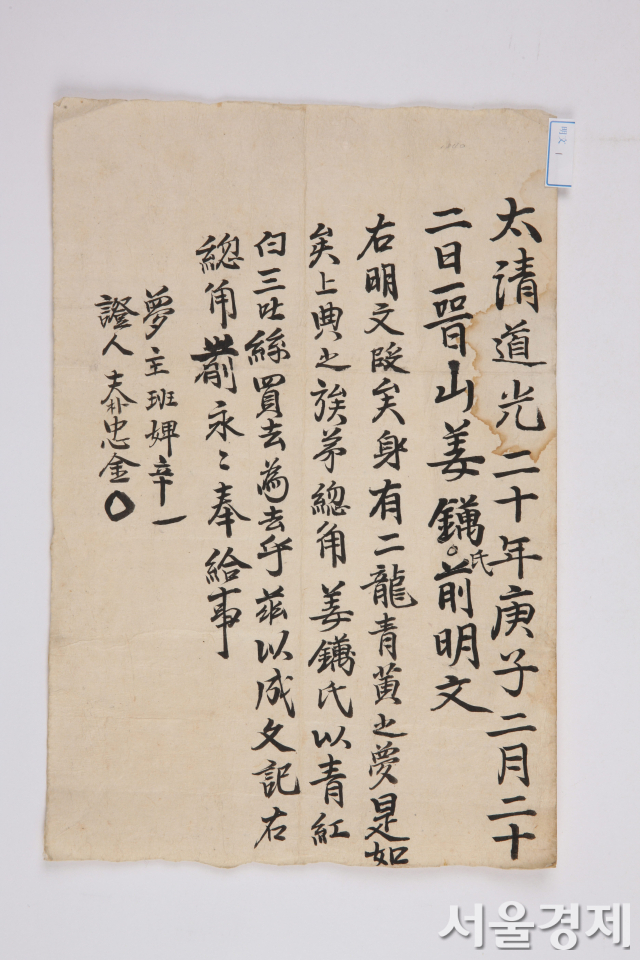 明文 1
太清道光二十年庚子二月二十
二日晉山姜鏋氏前明文
右明文段矣身有二龍青黃之夢是如
矣上典之族弟總角姜鏋氏以青紅
白三吐絲買去為去乎茲以成文記右
總角前永〻奉給事
夢主班婢辛一
證人夫朴忠金〇
서울경제